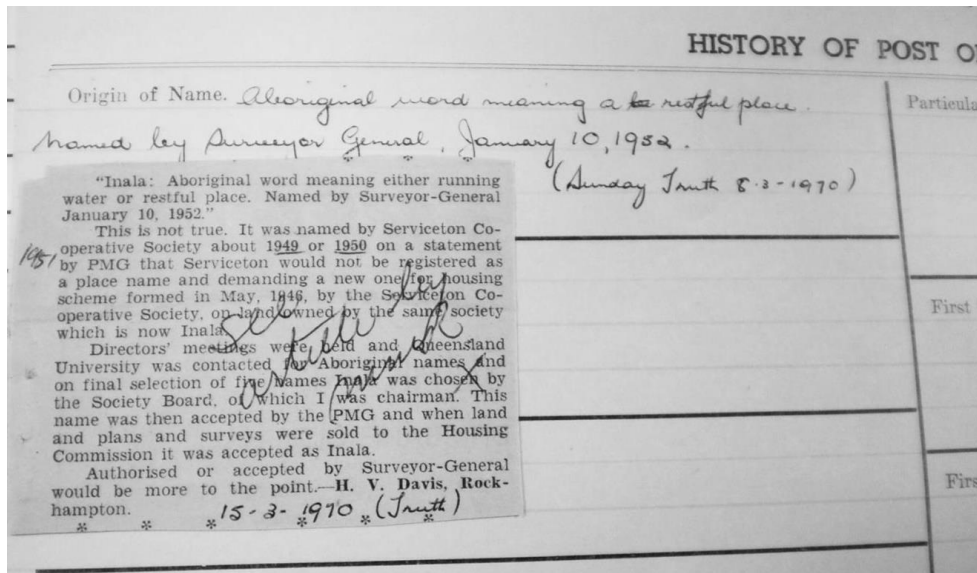 HISTORY OF POST O
Origin of Name. Aboriginal word meaning a restful place.
Particula
Named by Surveyor General, January 10, 1952.
(Sunday Truth 8-3-1970)
* * *
"Inala: Aboriginal word meaning either running
water or restful place. Named by Surveyor-General
January 10, 1952."
This is not true. It was named by Serviceton Co-
operative Society about 1949 or 1950 on a statement
1951
by PMG that Serviceton would not be registered as
a place name and demanding a new one for housing
scheme formed in May, 1946, by the Serviceton Co-
operative Society, on land owned by the same society
which is now Inala.
Directors' meetings were held and Queensland
University was contacted for Aboriginal names and
on final selection of five names Inala was chosen by
the Society Board, of which I was chairman. This
name was then accepted by the PMG and when land
and plans and surveys were sold to the Housing
Commission it was accepted as Inala.
Authorised or accepted by Surveyor-General
would be more to the point.—H. V. Davis, Rock-
hampton.
15-3-1970 (Truth)
* * * * *
See
article by
First
Firs